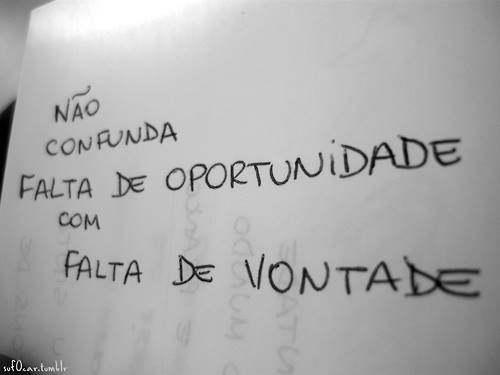 NÃO
CONFUNDA
FALTA DE OPORTUNiDADE
COM
FALTA DE VONTADE
suf0car.tumblr